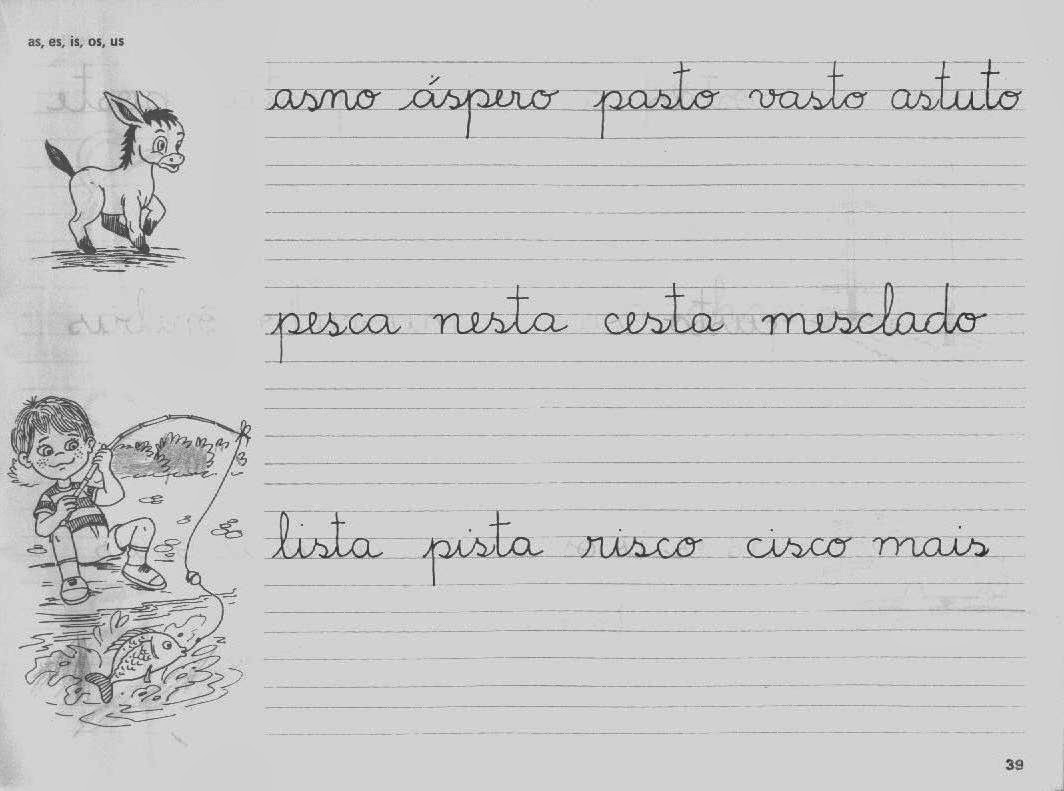 as, es, is, os, us
asno áspero pasto vasto astuto
pesca nesta cesta mesclado
lista pista risco cisco mais
39